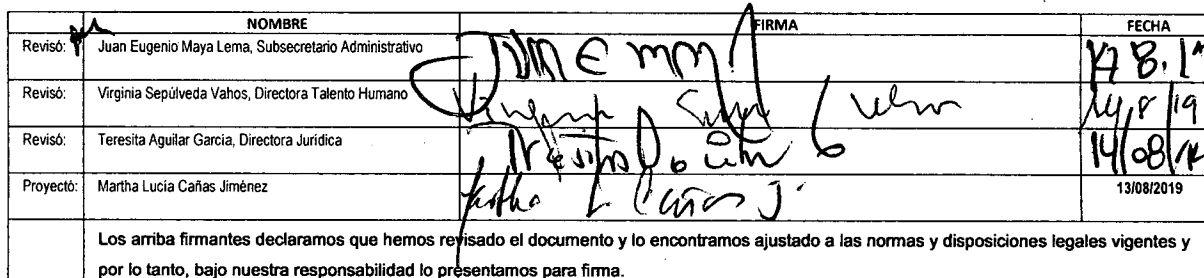 NOMBRE FIRMA FECHA
Revisó: Juan Eugenio Maya Lema, Subsecretario Administrativo
Revisó: Virginia Sepúlveda Vahos, Directora Talento Humano
Revisó: Teresita Aguilar García, Directora Jurídica 14/08/19
Proyectó: Martha Lucía Cañas Jiménez Martha L Cañas J. 13/08/2019
Los arriba firmantes declaramos que hemos revisado el documento y lo encontramos ajustado a las normas y disposiciones legales vigentes y
por lo tanto, bajo nuestra responsabilidad lo presentamos para firma.